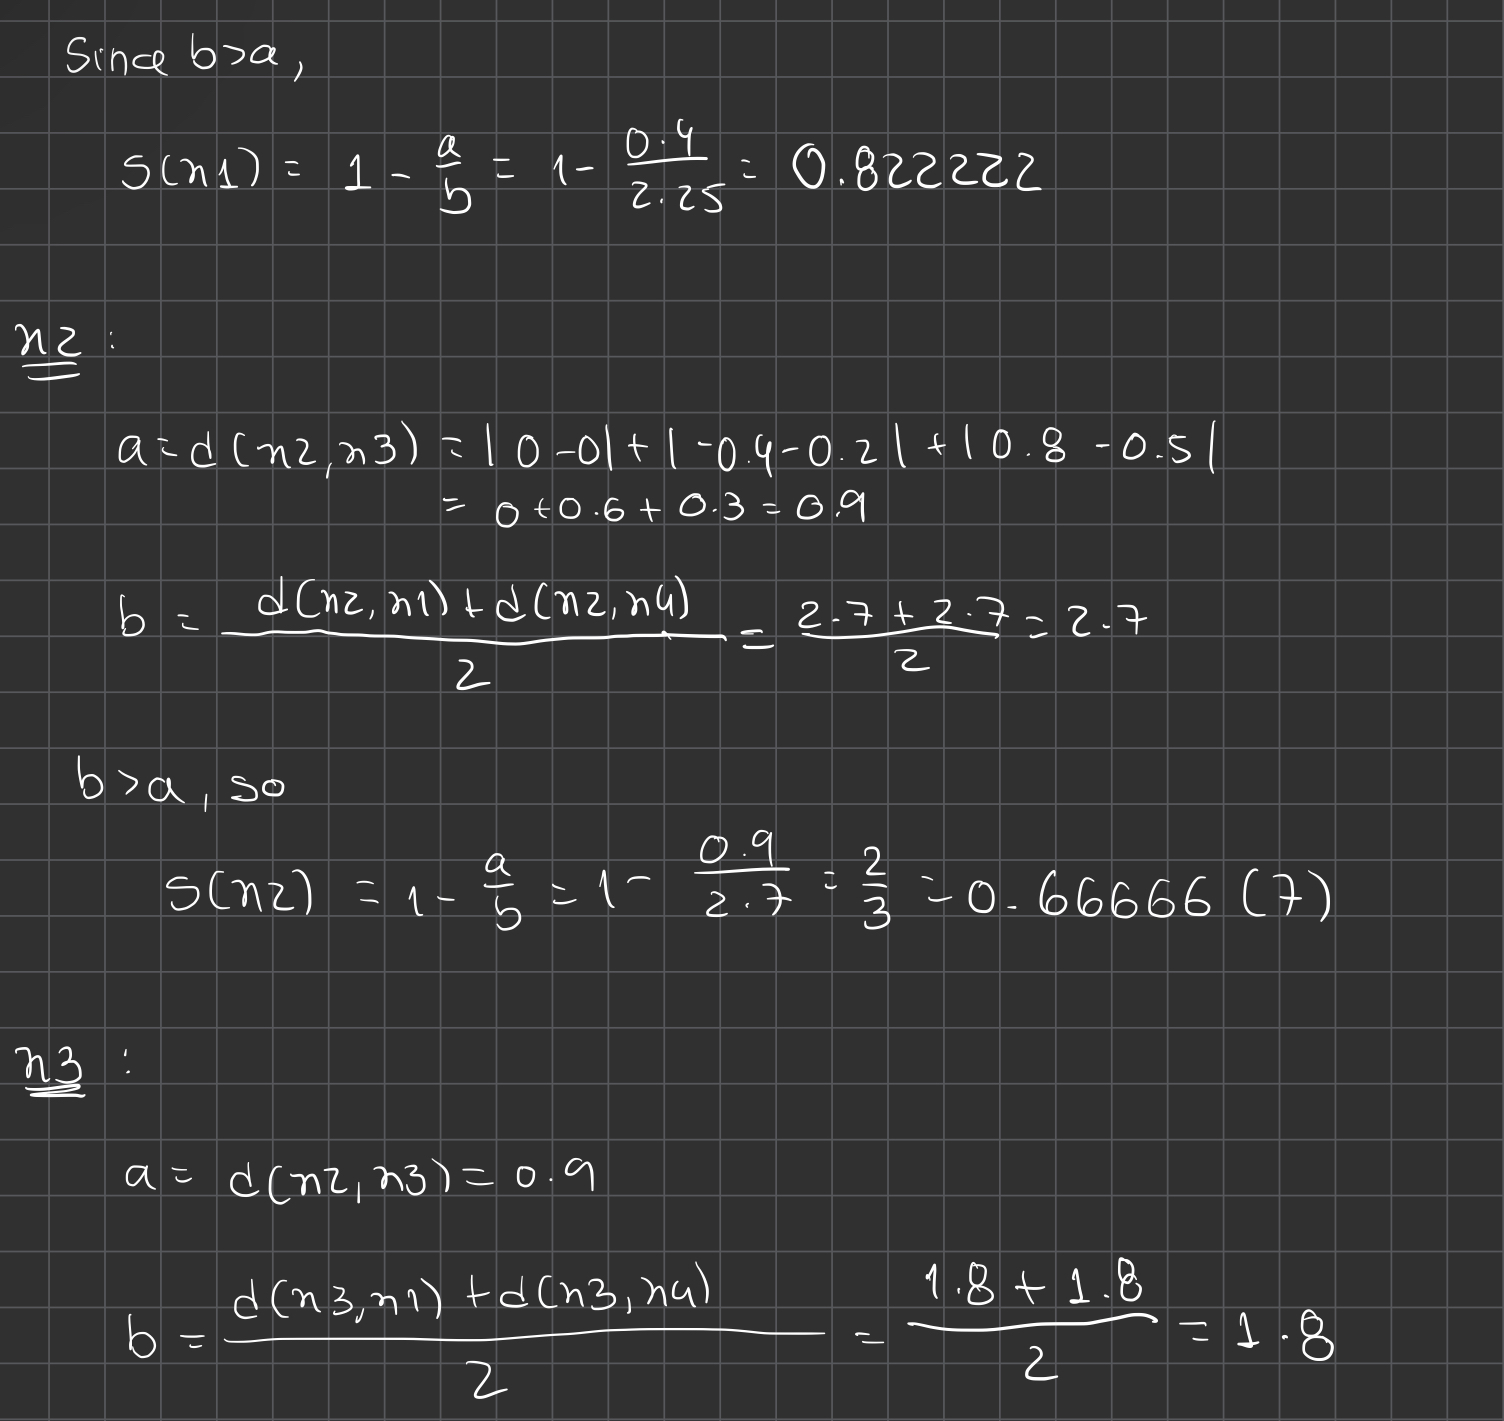 Since b>a,
S(x1) = 1 - a/b = 1 - 0.4/2.25 = 0.822222
x2 :
a = d(x2,x3) = |0-0| + |-0.4-0.2| + |0.8-0.5|
= 0+0.6+0.3 = 0.9
b = (d(x2,x1)+d(x2,x4))/2 = (2.7+2.7)/2 = 2.7
b>a, so
S(x2) = 1 - a/b = 1 - 0.9/2.7 = 2/3 = 0.66666(7)
x3 :
a = d(x2,x3) = 0.9
b = (d(x3,x1)+d(x3,x4))/2 = (1.8+1.8)/2 = 1.8